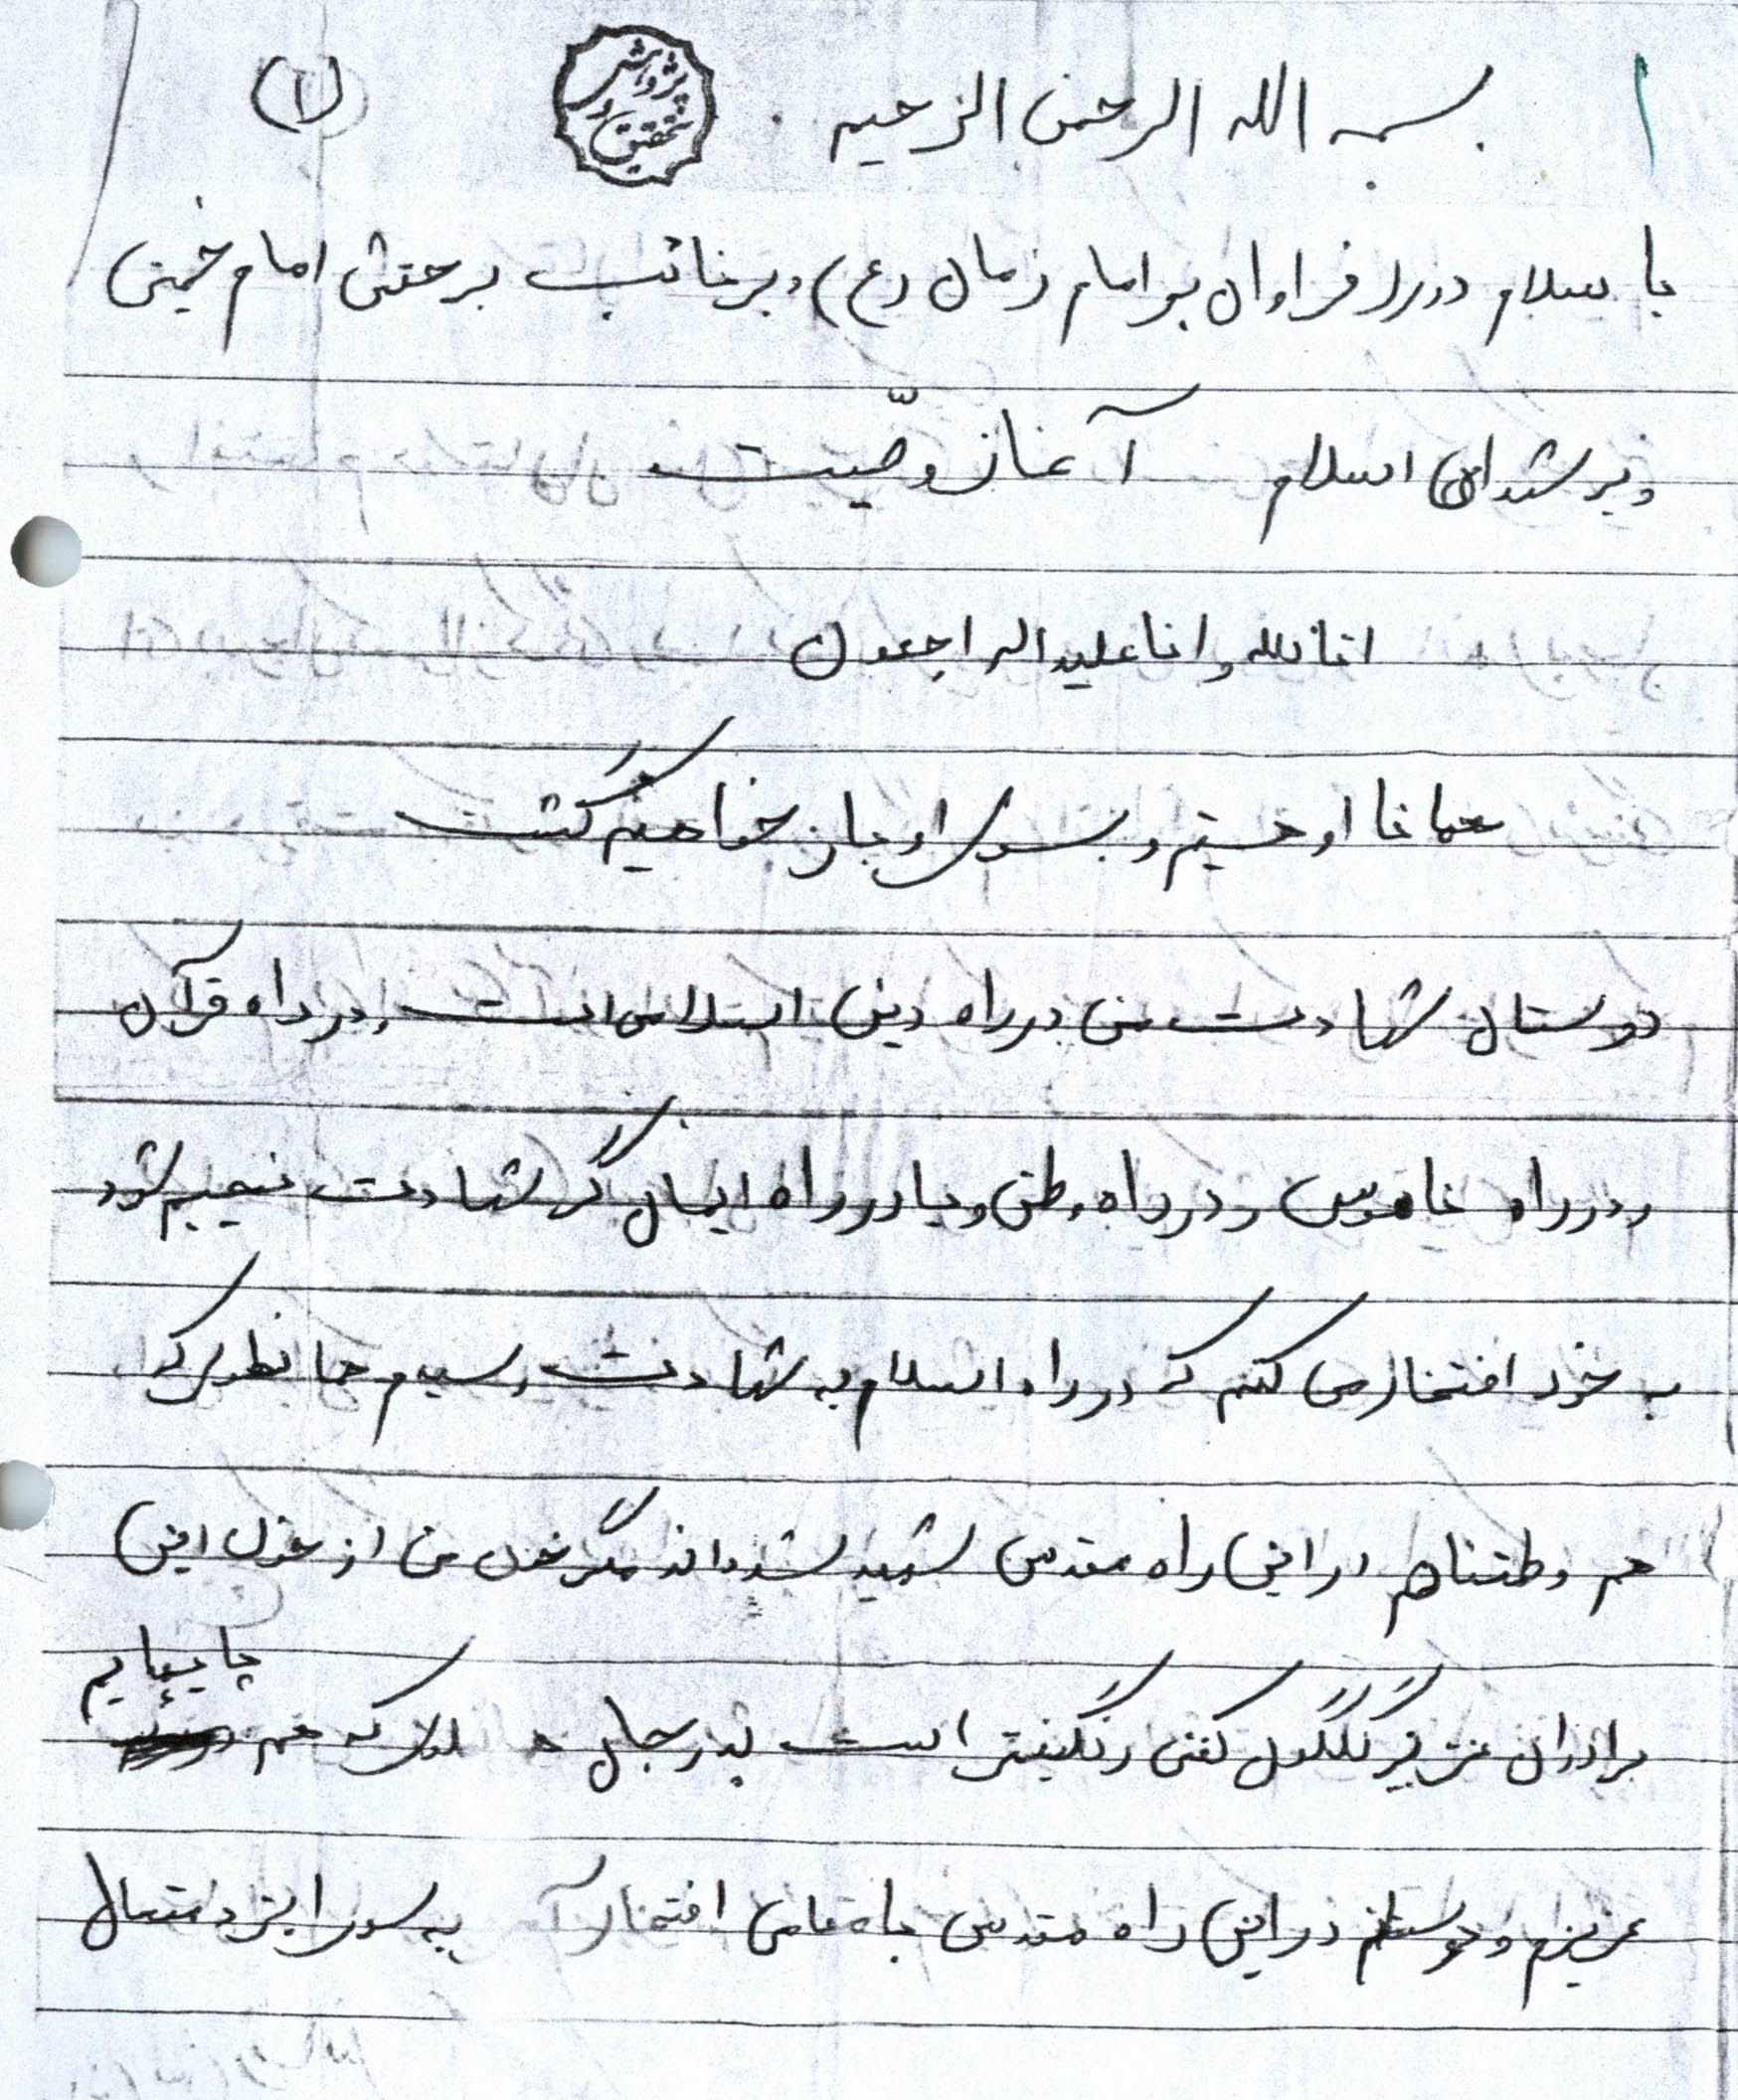 بسمه الله الرحمن الرحیم
(۱)
پژوهش و تحقیق
با سلام درود فراوان بر امام زمان (ع) و بر نائب بر حقش امام خمینی
و بر شهدای اسلام آغاز وصّیت
انا لله و انا علیه الراجعون
همانا از او هستیم و بسوی او باز خواهیم گشت
دوستان شهادت من در راه دین اسلامی است و در راه قرآن
و در راه ناموس و در راه وطن و یا در راه ایمان گر شهادت نصیبم شود
به خود افتخار می کنم که در راه اسلام به شهادت رسیدم همانطوری که
هم وطنناهم در این راه مقدس شهید شده اند مگر خون من از خون این
برادران عزیز گلگون کفن رنگینتر است پدر جان لالا که هم پاییهایم
عزیزم و دوستانم در این راه مقدس با تمامی افتخار به سوی ایزد متعال